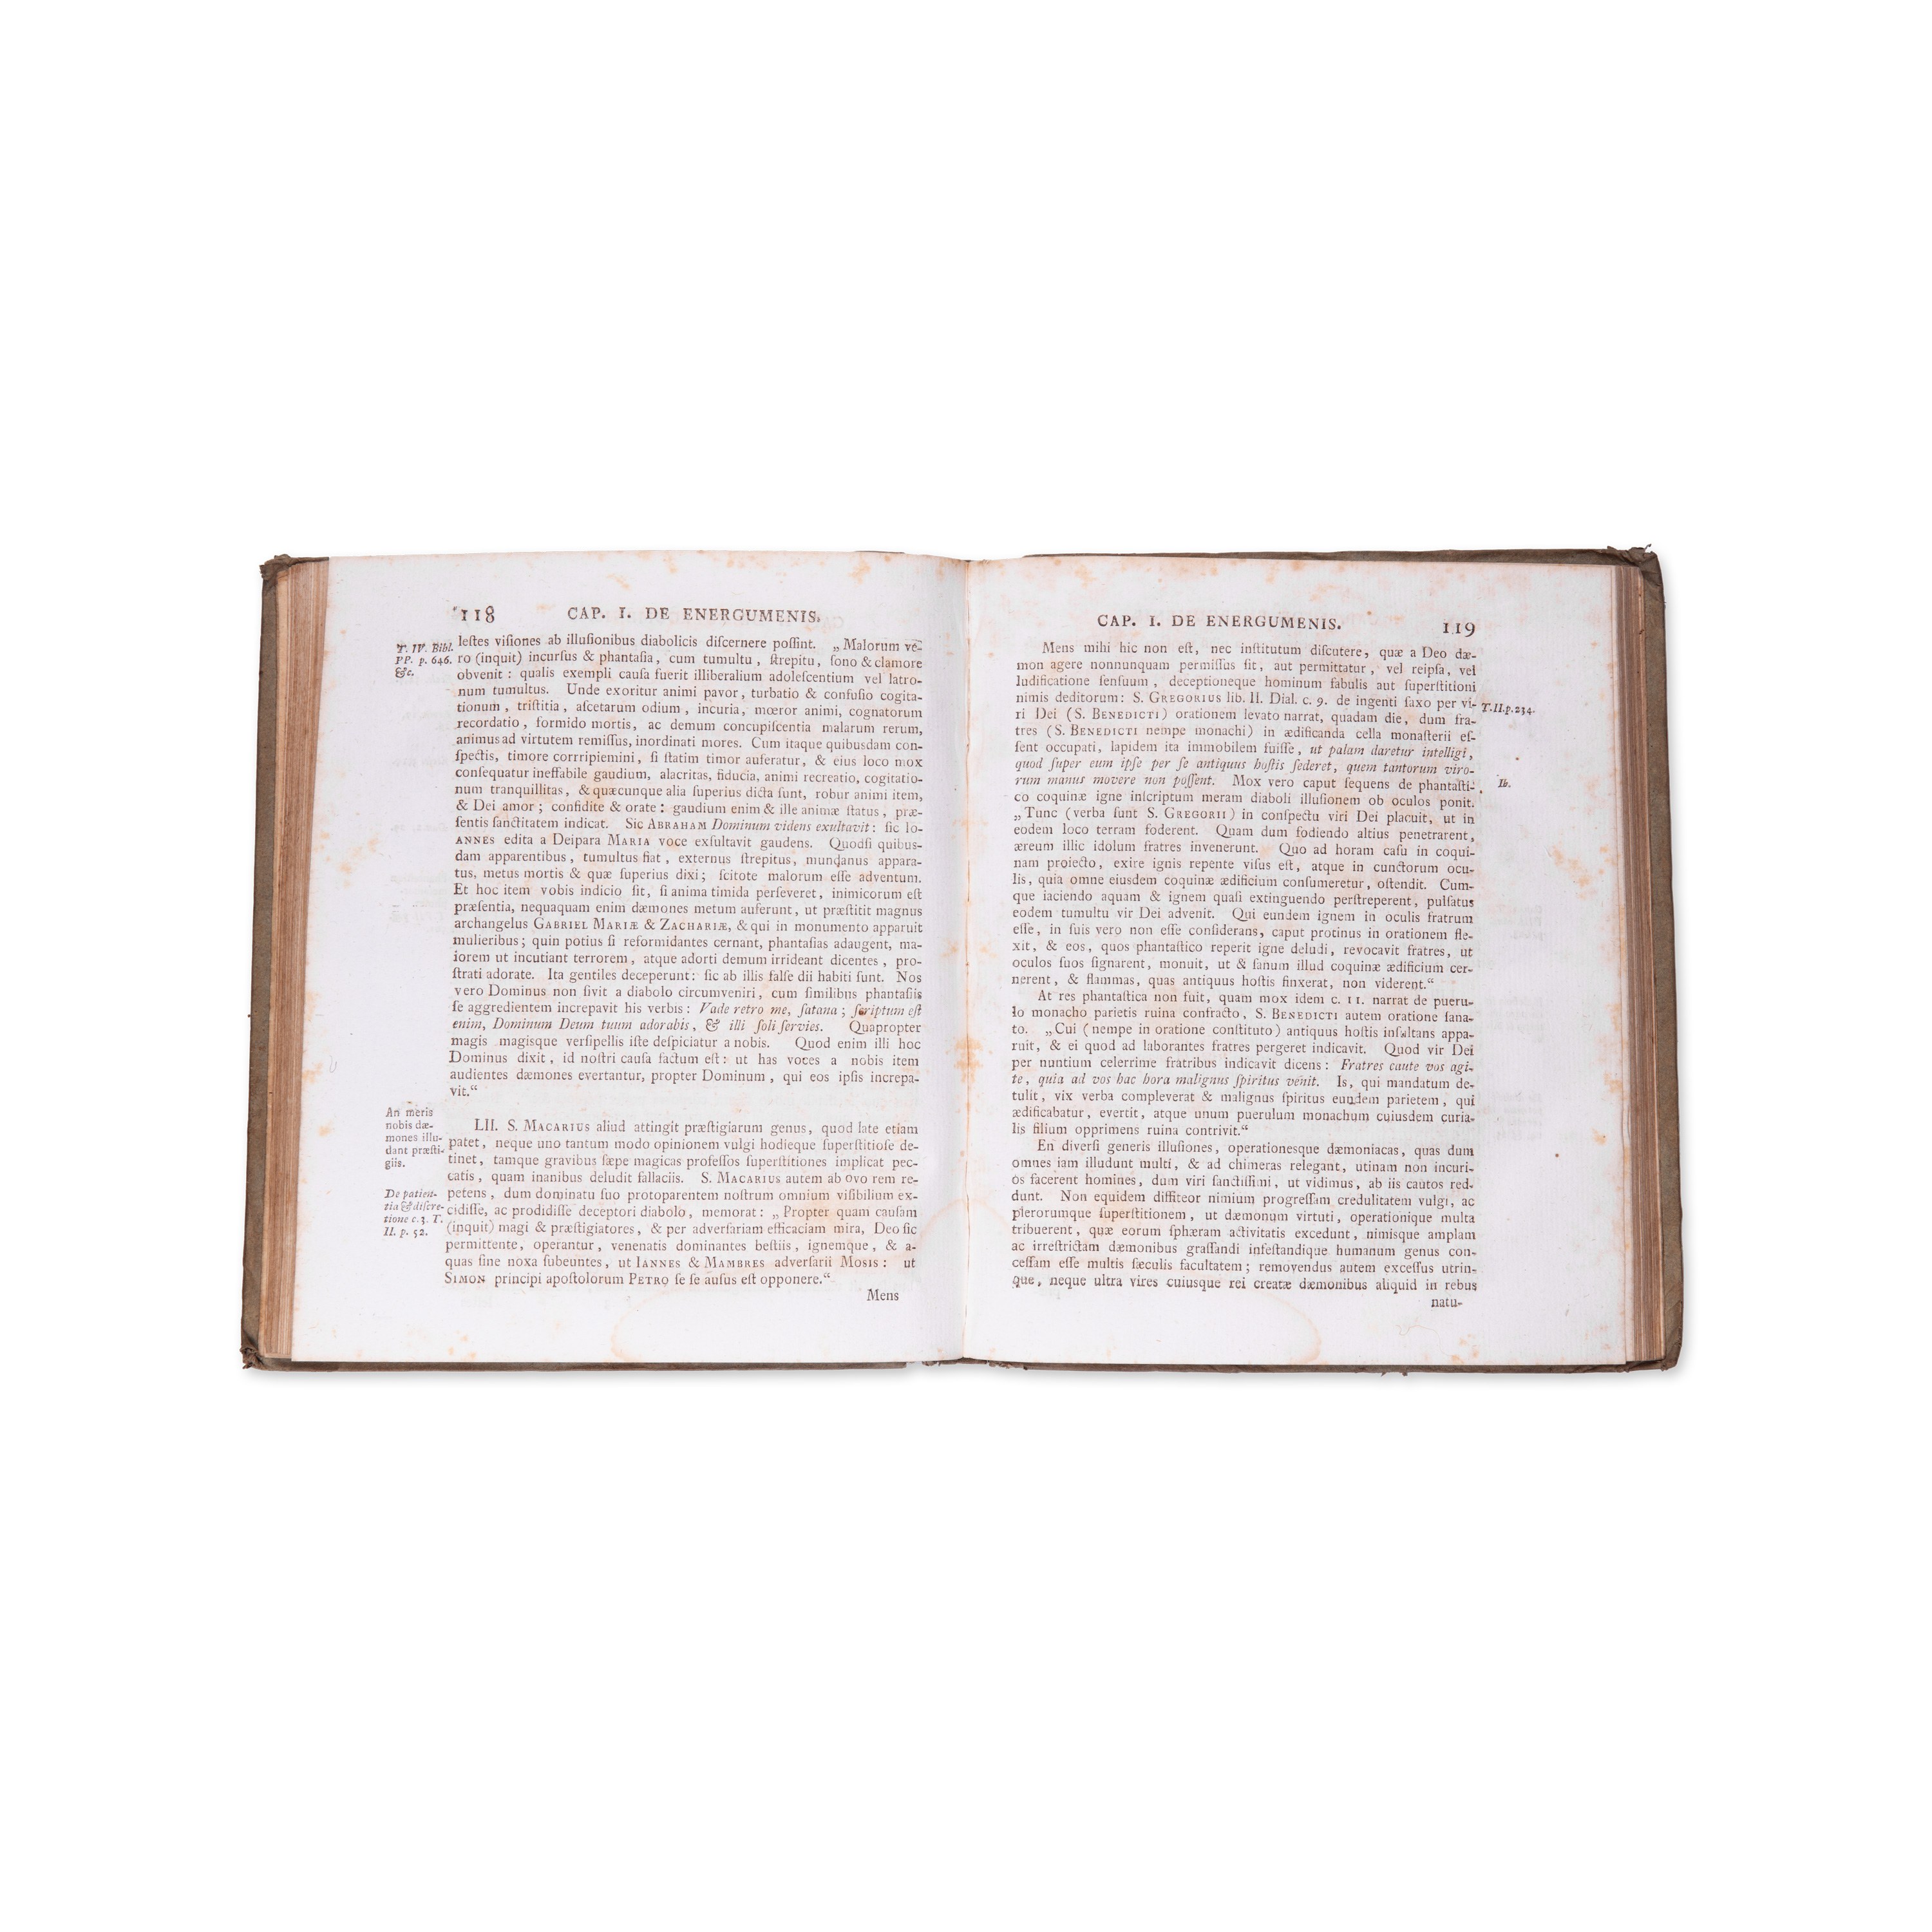 118 CAP. I. DE ENERGUMENIS.
T. IV. Bibl.
PP. p. 646.
&c.
leſtes viſiones ab illuſionibus diabolicis diſcernere poſſint. „Malorum ve-
ro (inquit) incurſus & phantaſia, cum tumultu, ſtrepitu, ſono & clamore
obvenit: qualis exempli cauſa fuerit illiberalium adoleſcentium vel latro-
num tumultus. Unde exoritur animi pavor, turbatio & confuſio cogita-
tionum, triſtitia, aſcetarum odium, incuria, mœror animi, cognatorum
recordatio, formido mortis, ac demum concupiſcentia malarum rerum,
animus ad virtutem remiſſus, inordinati mores. Cum itaque quibusdam con-
ſpectis, timore corrripiemini, ſi ſtatim timor auferatur, & eius loco mox
conſequatur ineffabile gaudium, alacritas, fiducia, animi recreatio, cogitatio-
num tranquillitas, & quæcunque alia ſuperius dicta ſunt, robur animi item,
& Dei amor; confidite & orate: gaudium enim & ille animæ ſtatus, præ-
ſentis ſanctitatem indicat. Sic ABRAHAM Dominum videns exultavit: ſic IO-
ANNES edita a Deipara MARIA voce exſultavit gaudens. Quodſi quibus-
dam apparentibus, tumultus fiat, externus ſtrepitus, mundanus appara-
tus, metus mortis & quæ ſuperius dixi; ſcitote malorum eſſe adventum.
Et hoc item vobis indicio ſit, ſi anima timida perſeveret, inimicorum eſt
præſentia, nequaquam enim dæmones metum auferunt, ut præſtitit magnus
archangelus GABRIEL MARIÆ & ZACHARIÆ, & qui in monumento apparuit
mulieribus; quin potius ſi reformidantes cernant, phantaſias adaugent, ma-
iorem ut incutiant terrorem, atque adorti demum irrideant dicentes, pro-
ſtrati adorate. Ita gentiles deceperunt: ſic ab illis falſe dii habiti ſunt. Nos
vero Dominus non ſivit a diabolo circumveniri, cum ſimilibus phantaſiis
ſe aggredientem increpavit his verbis: Vade retro me, ſatana; ſcriptum eſt
enim, Dominum Deum tuum adorabis, & illi ſoli ſervies. Quapropter
magis magisque verſipellis iſte deſpiciatur a nobis. Quod enim illi hoc
Dominus dixit, id noſtri cauſa factum eſt: ut has voces a nobis item
audientes dæmones evertantur, propter Dominum, qui eos ipſis increpa-
vit.“
An meris
nobis dæ-
mones illu-
dant præſti-
giis.
De patien-
tia & diſcre-
tione c. 3. T.
II. p. 52.
LII. S. MACARIUS aliud attingit præſtigiarum genus, quod late etiam
patet, neque uno tantum modo opinionem vulgi hodieque ſuperſtitioſe de-
tinet, tamque gravibus ſæpe magicas profeſſos ſuperſtitiones implicat pec-
catis, quam inanibus deludit fallaciis. S. MACARIUS autem ab ovo rem re-
petens, dum dominatu ſuo protoparentem noſtrum omnium viſibilium ex-
cidiſſe, ac prodidiſſe deceptori diabolo, memorat: „Propter quam cauſam
(inquit) magi & præſtigiatores, & per adverſariam efficaciam mira, Deo ſic
permittente, operantur, venenatis dominantes beſtiis, ignemque, & a-
quas ſine noxa ſubeuntes, ut IANNES & MAMBRES adverſarii MOSIS: ut
SIMON principi apoſtolorum PETRO ſe ſe auſus eſt opponere.“
Mens
CAP. I. DE ENERGUMENIS. 119
Mens mihi hic non eſt, nec inſtitutum diſcutere, quæ a Deo dæ-
mon agere nonnunquam permiſſus ſit, aut permittatur, vel reipſa, vel
ludificatione ſenſuum, deceptioneque hominum fabulis aut ſuperſtitioni
nimis deditorum: S. GREGORIUS lib. II. Dial. c. 9. de ingenti ſaxo per vi-
ri Dei (S. BENEDICTI) orationem levato narrat, quadam die, dum fra-
tres (S. BENEDICTI nempe monachi) in ædificanda cella monaſterii eſ-
ſent occupati, lapidem ita immobilem fuiſſe, ut palam daretur intelligi,
quod ſuper eum ipſe per ſe antiquus hoſtis ſederet, quem tantorum viro-
rum manus movere non poſſent. Mox vero caput ſequens de phantaſti-
co coquinæ igne inſcriptum meram diaboli illuſionem ob oculos ponit.
„Tunc (verba ſunt S. GREGORII) in conſpectu viri Dei placuit, ut in
eodem loco terram foderent. Quam dum fodiendo altius penetrarent,
æreum illic idolum fratres invenerunt. Quo ad horam caſu in coqui-
nam proiecto, exire ignis repente viſus eſt, atque in cunctorum ocu-
lis, quia omne eiusdem coquinæ ædificium conſumeretur, oſtendit. Cum-
que iaciendo aquam & ignem quaſi extinguendo perſtreperent, pulſatus
eodem tumultu vir Dei advenit. Qui eundem ignem in oculis fratrum
eſſe, in ſuis vero non eſſe conſiderans, caput protinus in orationem fle-
xit, & eos, quos phantaſtico reperit igne deludi, revocavit fratres, ut
oculos ſuos ſignarent, monuit, ut & ſanum illud coquinæ ædificium cer-
nerent, & flammas, quas antiquus hoſtis finxerat, non viderent.“
At res phantaſtica non fuit, quam mox idem c. 11. narrat de pueru-
lo monacho parietis ruina confracto, S. BENEDICTI autem oratione ſana-
to. „Cui (nempe in oratione conſtituto) antiquus hoſtis inſultans appa-
ruit, & ei quod ad laborantes fratres pergeret indicavit. Quod vir Dei
per nuntium celerrime fratribus indicavit dicens: Fratres caute vos agi-
te, quia ad vos hac hora malignus ſpiritus venit. Is, qui mandatum de-
tulit, vix verba compleverat & malignus ſpiritus eundem parietem, qui
ædificabatur, evertit, atque unum puerulum monachum cuiusdem curia-
lis filium opprimens ruina contrivit.“
En diverſi generis illuſiones, operationesque dæmoniacas, quas dum
omnes iam illudunt multi, & ad chimeras relegant, utinam non incuri-
os facerent homines, dum viri ſanctiſſimi, ut vidimus, ab iis cautos red-
dunt. Non equidem diffiteor nimium progreſſam credulitatem vulgi, ac
plerorumque ſuperſtitionem, ut dæmonum virtuti, operationique multa
tribuerent, quæ eorum ſphæram activitatis excedunt, nimisque amplam
ac irreſtrictam dæmonibus graſſandi infeſtandique humanum genus con-
ceſſam eſſe multis ſæculis facultatem; removendus autem exceſſus utrin-
que, neque ultra vires cuiusque rei creatæ dæmonibus aliquid in rebus
natu-
T.II.p.234.
Ib.